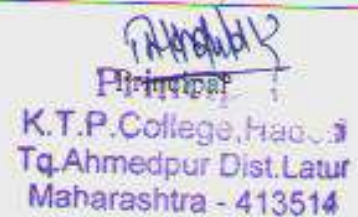 Principal
K.T.P. College,
Tq.Ahmedpur Dist.Latur
Maharashtra - 413514